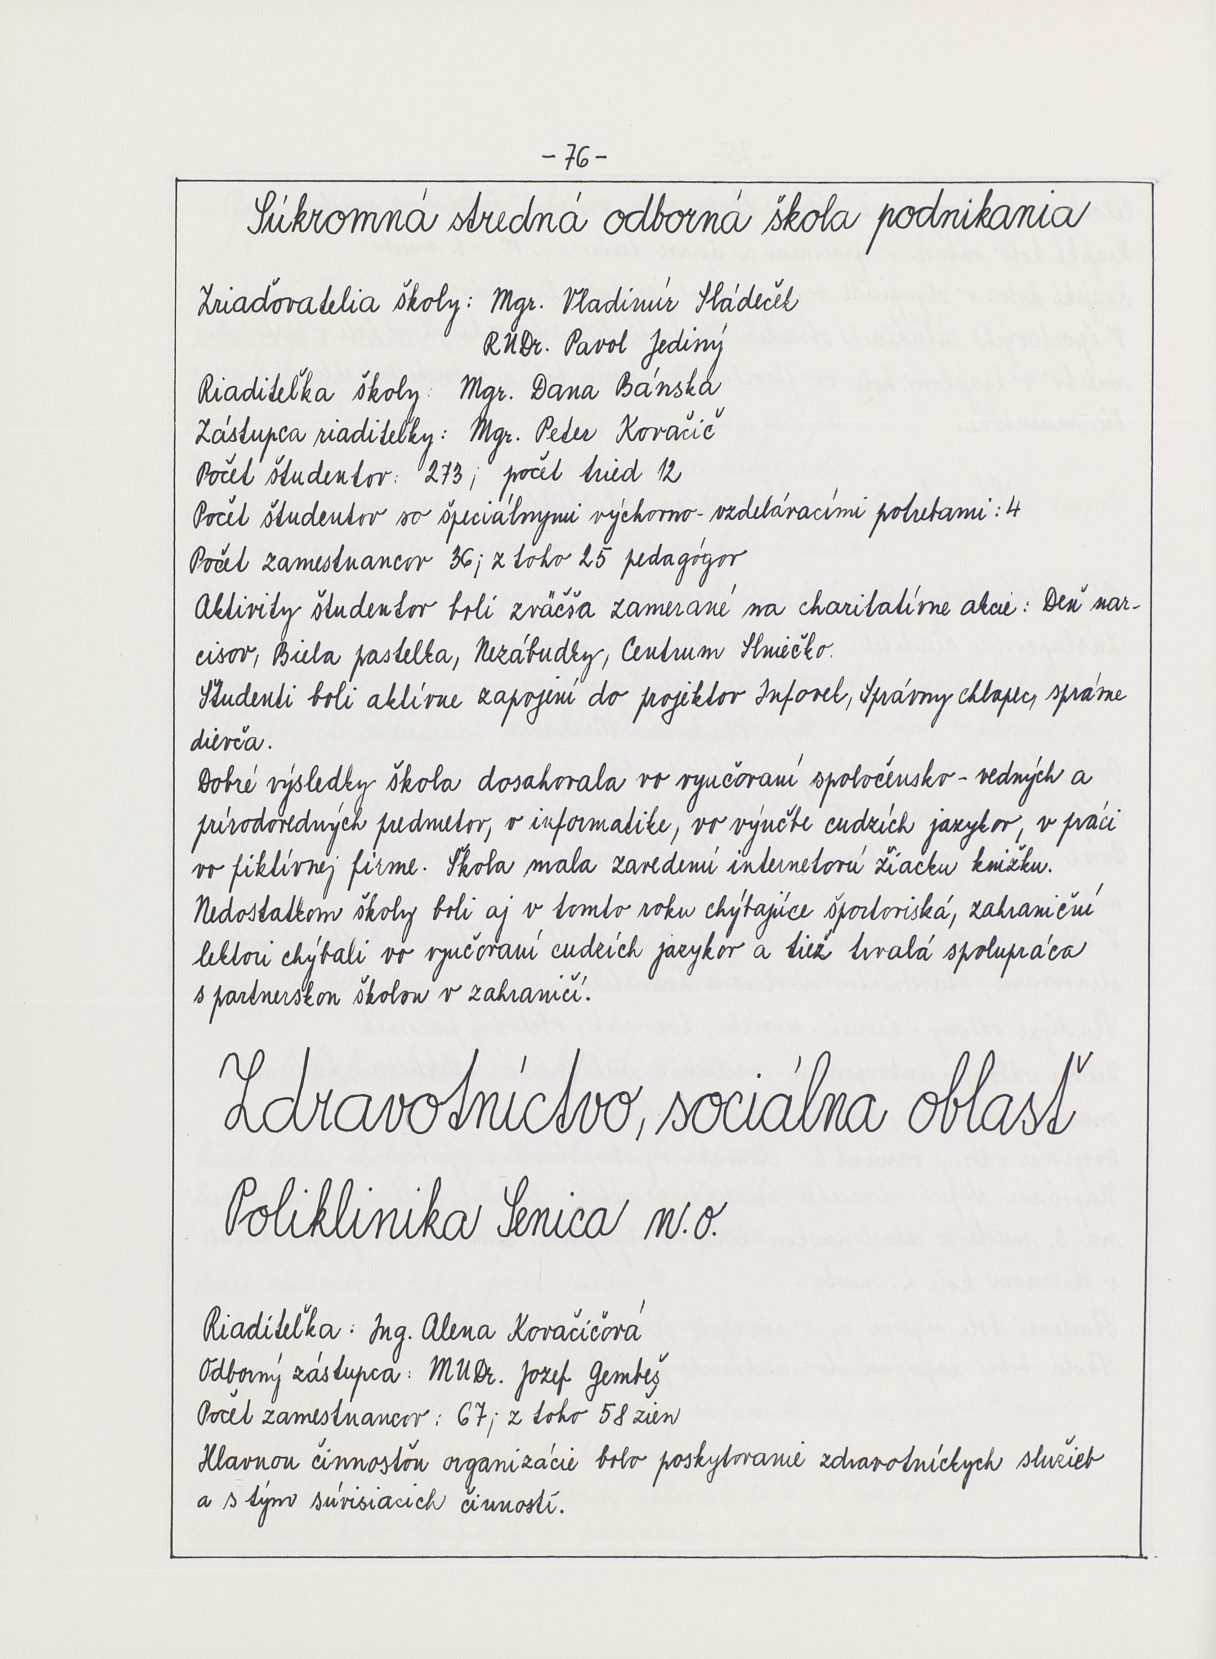 - 76 -
Súkromná stredná odborná škola podnikania
Zriaďovatelia školy: Mgr. Vladimír Sládeček
RNDr. Pavol Jediný
Riaditeľka školy: Mgr. Dana Bánska
Zástupca riaditeľky: Mgr. Peter Kovačič
Počet študentov: 273; počet tried 12
Počet študentov so špeciálnymi výchovno-vzdelávacími potrebami: 4
Počet zamestnancov 36; z toho 25 pedagógov
Aktivity študentov boli zväčša zamerané na charitatívne akcie: Deň nar-
cisov, Biela pastelka, Nezábudky, Centrum Slniečko.
Študenti boli aktívne zapojení do projektov Infovek, Správny chlapec, správne
dievča.
Dobré výsledky škola dosahovala vo vyučovaní spoločensko-vedných a
prírodovedných predmetov, v informatike, vo výučbe cudzích jazykov, v práci
vo fiktívnej firme. Škola mala zavedenú internetovú žiacku knižku.
Nedostatkom školy boli aj v tomto roku chýbajúce športoviská, zahraniční
lektori chýbali vo vyučovaní cudzích jazykov a tiež trvalá spolupráca
s partnerskou školou v zahraničí.
Zdravotníctvo, sociálna oblasť
Poliklinika Senica n.o.
Riaditeľka: Ing. Alena Kovačičová
Odborný zástupca: MUDr. Jozef Gembeš
Počet zamestnancov: 67; z toho 58 žien
Hlavnou činnosťou organizácie bolo poskytovanie zdravotníckych služieb
a s tým súvisiacich činností.